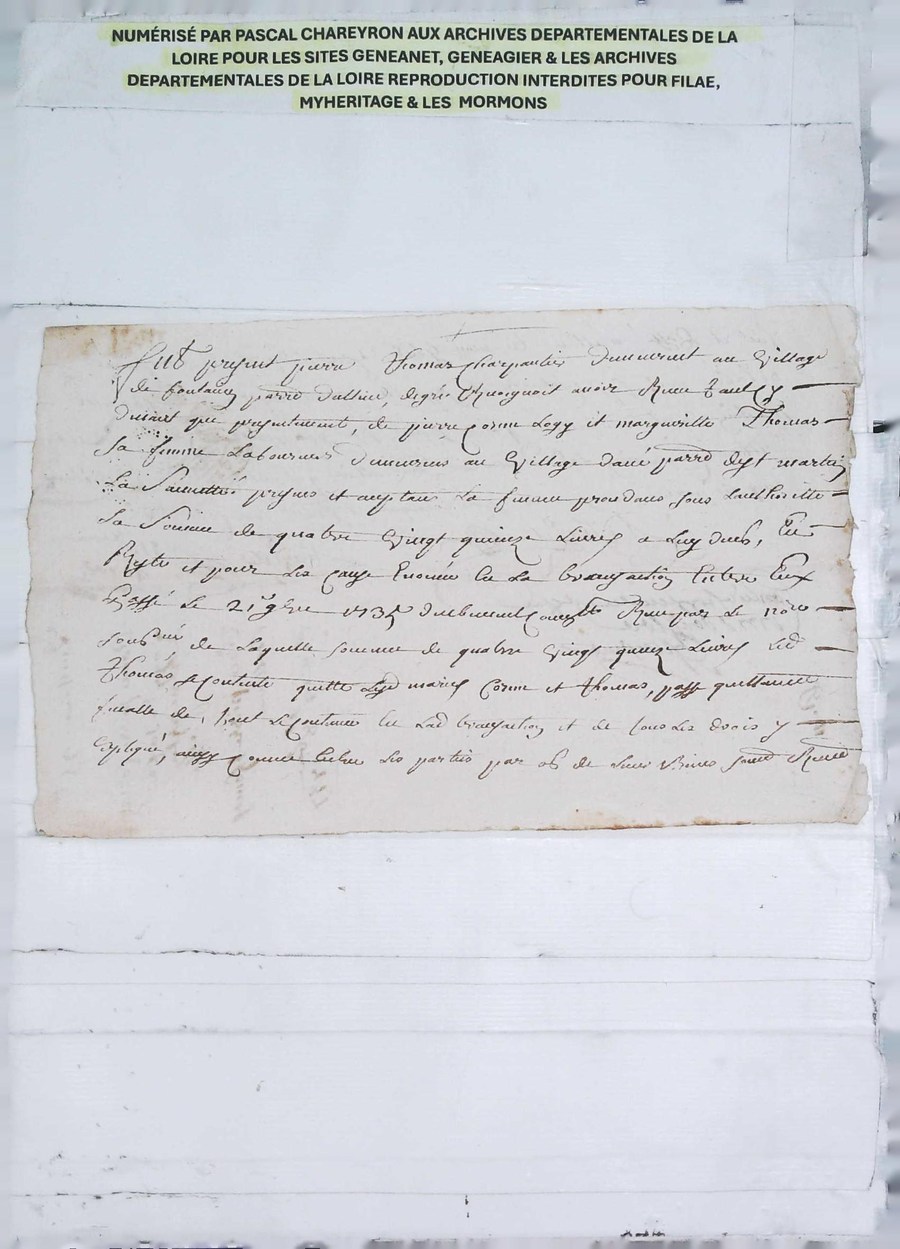 NUMÉRISÉ PAR PASCAL CHAREYRON AUX ARCHIVES DEPARTEMENTALES DE LA
LOIRE POUR LES SITES GENEANET, GENEAGIER & LES ARCHIVES
DEPARTEMENTALES DE LA LOIRE REPRODUCTION INTERDITES POUR FILAE,
MYHERITAGE & LES MORMONS
fut present pierre Thomas charpantier demeurant au Village
de parre degré Recognoit avoir Receu tant cy
devant que presentement, de pierre Cosme Logy et margueritte Thomas
sa femme Laboureurs demeurens au Village parre dest martin
La Sauvetté presens et aceptans La femme procedans sous Lauthoritté
La Somme de quatre Vingt quinze Livres a Luy deub, En
Reste et pour La cause Enoncée En La transaction Entre Eux
passé Le 21e 9bre 1735 Receu par Le nore
soubné, de Laquelle somme de quatre Vingt quinze Livres Led
Thomas se Contente quitte Lesd mariés Cosme et Thomas, passe quittance
finalle de tout Le Contenu En Lad transaction et de tous Les droits y
Expliqué, ainsy Convenu Entre Les parties par de Leurs Biens